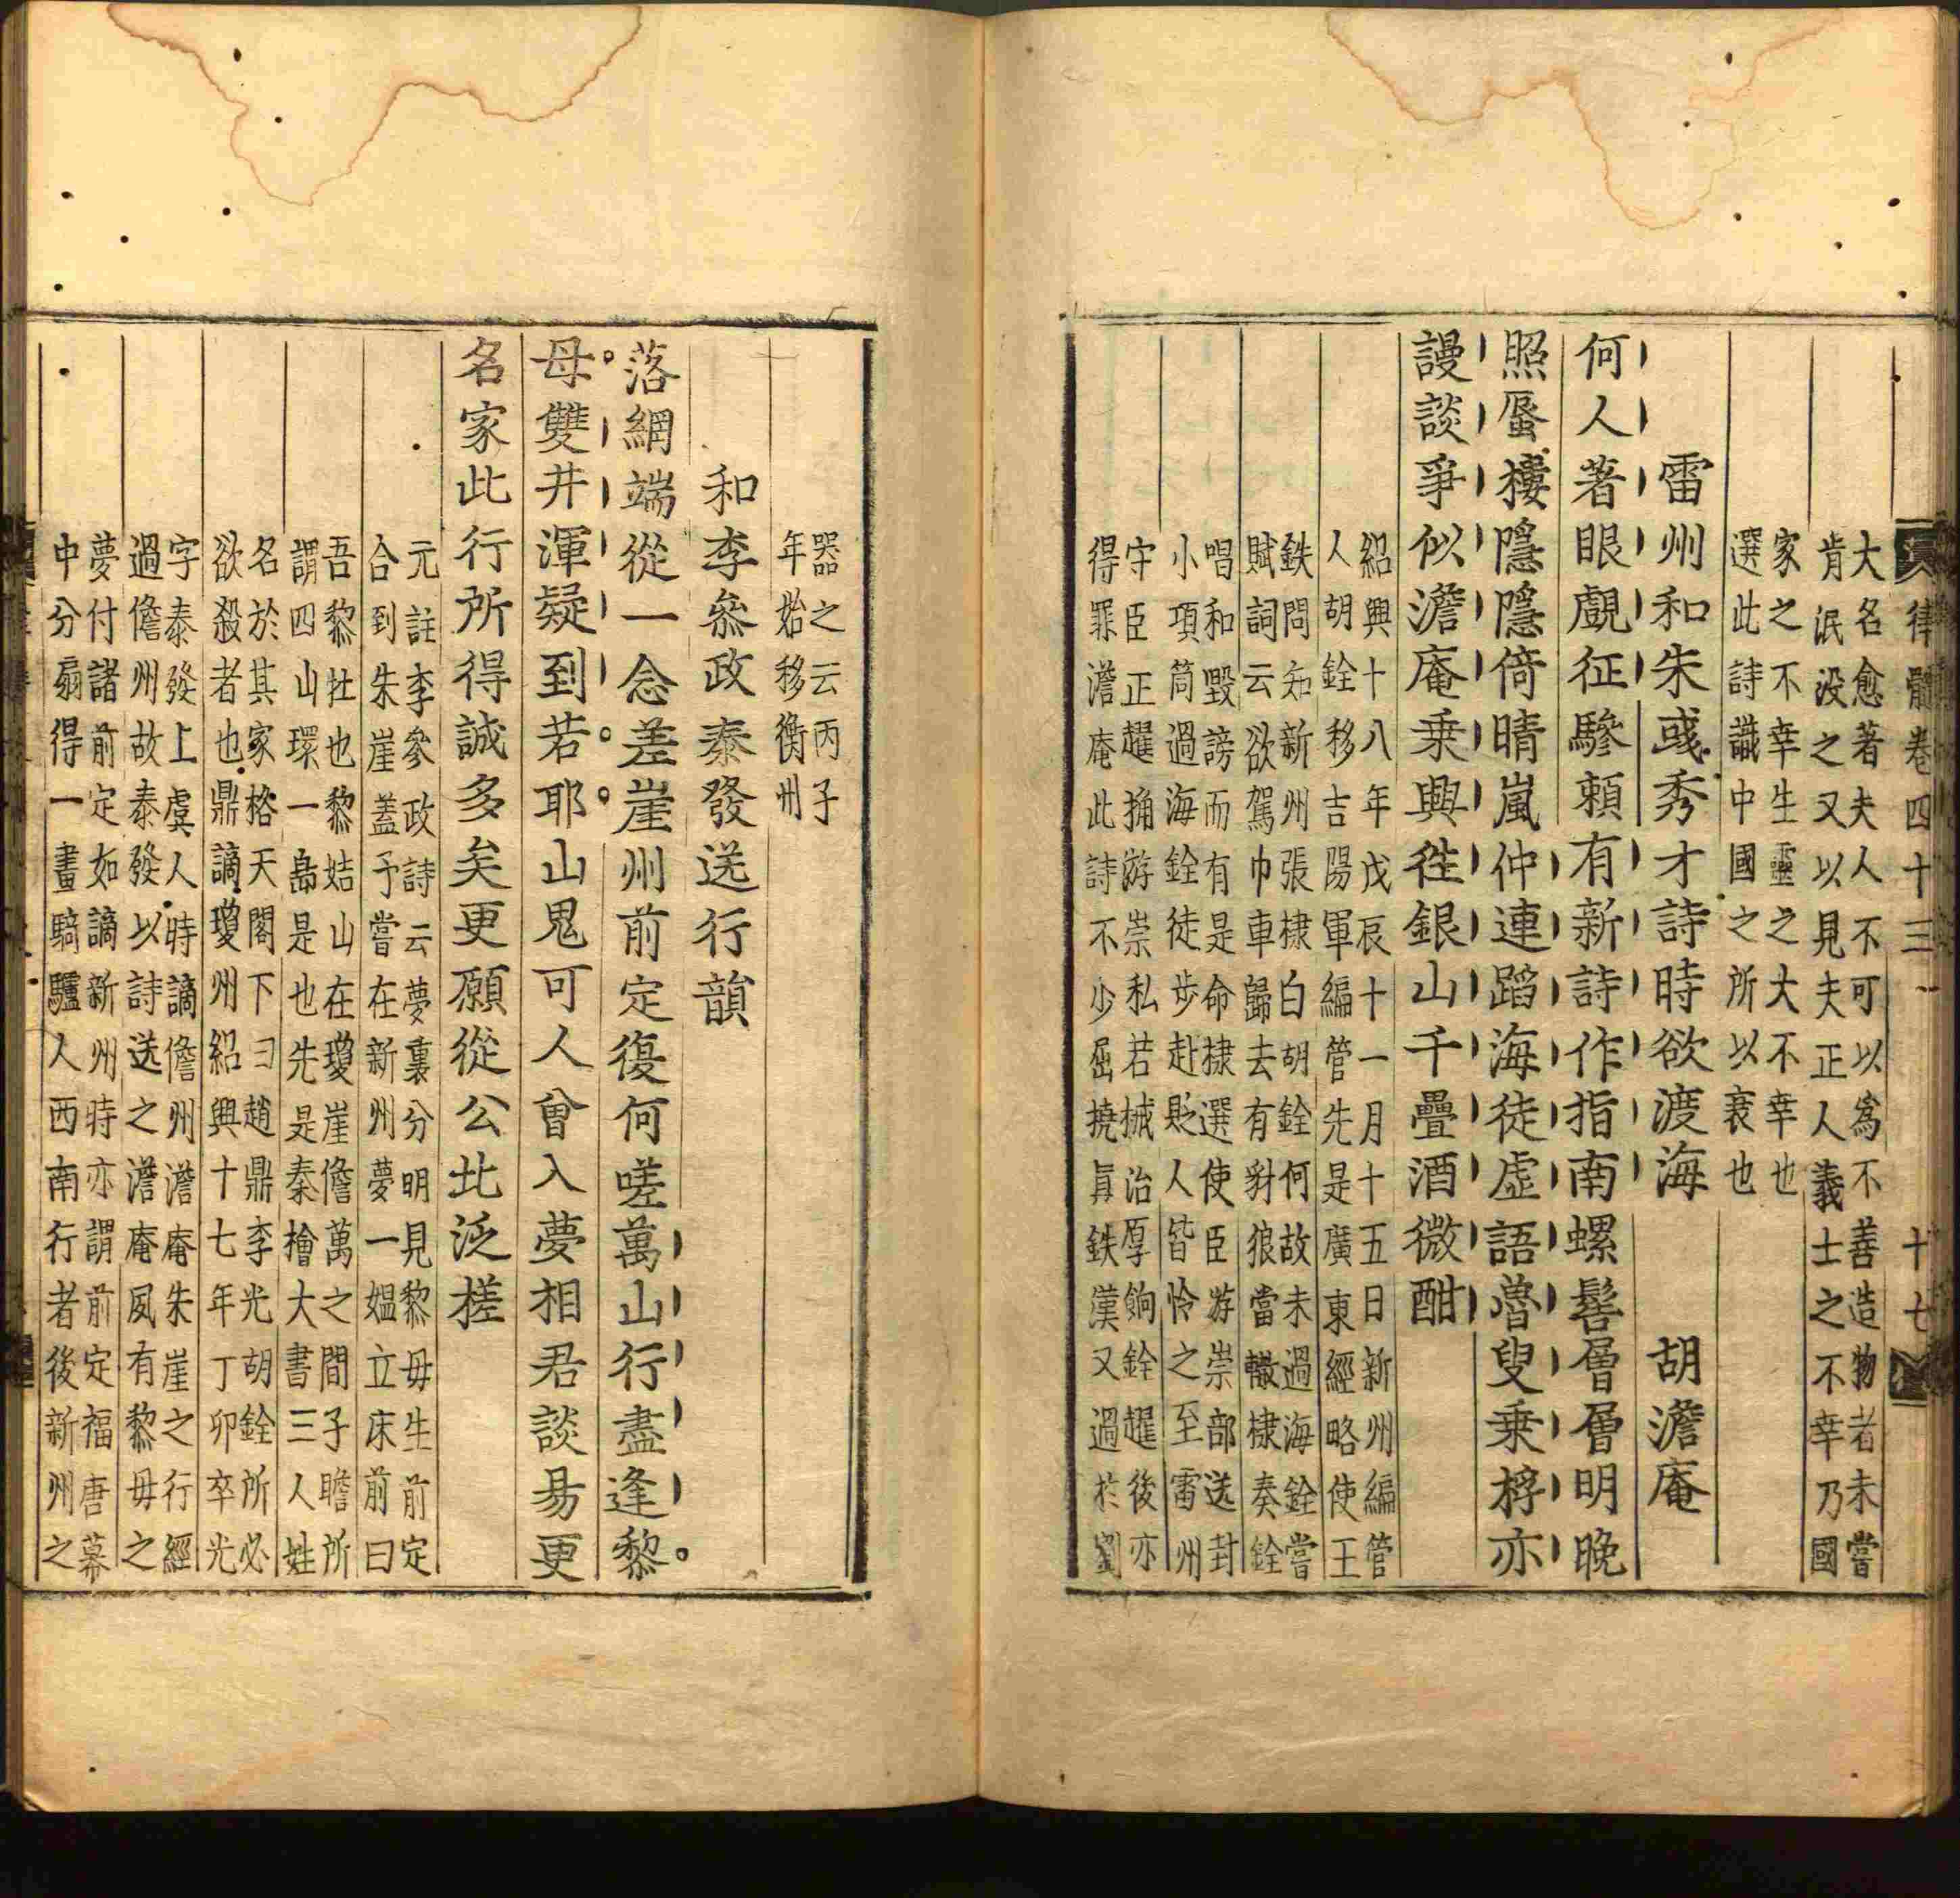 律髓卷四十三
十七
大名愈著夫人不可以爲不善造物者未嘗
肯泯没之又以見夫正人義士之不幸乃國
家之不幸生靈之大不幸也
選此詩識中國之所以衰也
雷州和朱彧秀才詩時欲渡海
胡澹庵
何人著眼覷征驂頼有新詩作指南螺髻層層明晚
照蜃樓隱隱倚晴嵐仲連蹈海徒虛語魯叟乗桴亦
謾談爭似澹庵乗興徃銀山千疊酒微酣
紹興十八年戊辰十一月十五日新州編管
人胡銓移吉陽軍編管先是廣東經略使王
鉄問知新州張棣白胡銓何故未過海銓嘗
賦詞云欲駕巾車歸去有豺狼當轍棣奏銓
唱和毀謗而有是命棣選使臣游崇部送封
小項筒過海銓徒步赴貶人皆怜之至雷州
守臣正趯捕游崇私若械治厚餉銓趯後亦
得罪澹庵此詩不少屈撓眞鉄漢又過於劉
器之云丙子
年始移衡州
和李叅政泰發送行韻
落網端從一念差崖州前定復何嗟萬山行盡逢黎
母雙井渾疑到若耶山鬼可人曾入夢相君談易更
名家此行所得誠多矣更願從公北泛槎
元註李參政詩云夢裏分明見黎母生前定
合到朱崖蓋予嘗在新州夢一媪立床前曰
吾黎壮也黎姑山在瓊崖儋萬之間子瞻所
謂四山環一島是也先是秦檜大書三人姓
名於其家格天閣下曰趙鼎李光胡銓所必
欲殺者也鼎謫瓊州紹興十七年丁卯卒光
字泰發上虞人時謫儋州澹庵朱崖之行經
過儋州故泰發以詩送之澹庵夙有黎母之
夢付諸前定如謫新州時亦謂前定福唐幕
中分扇得一畫騎驢人西南行者後新州之